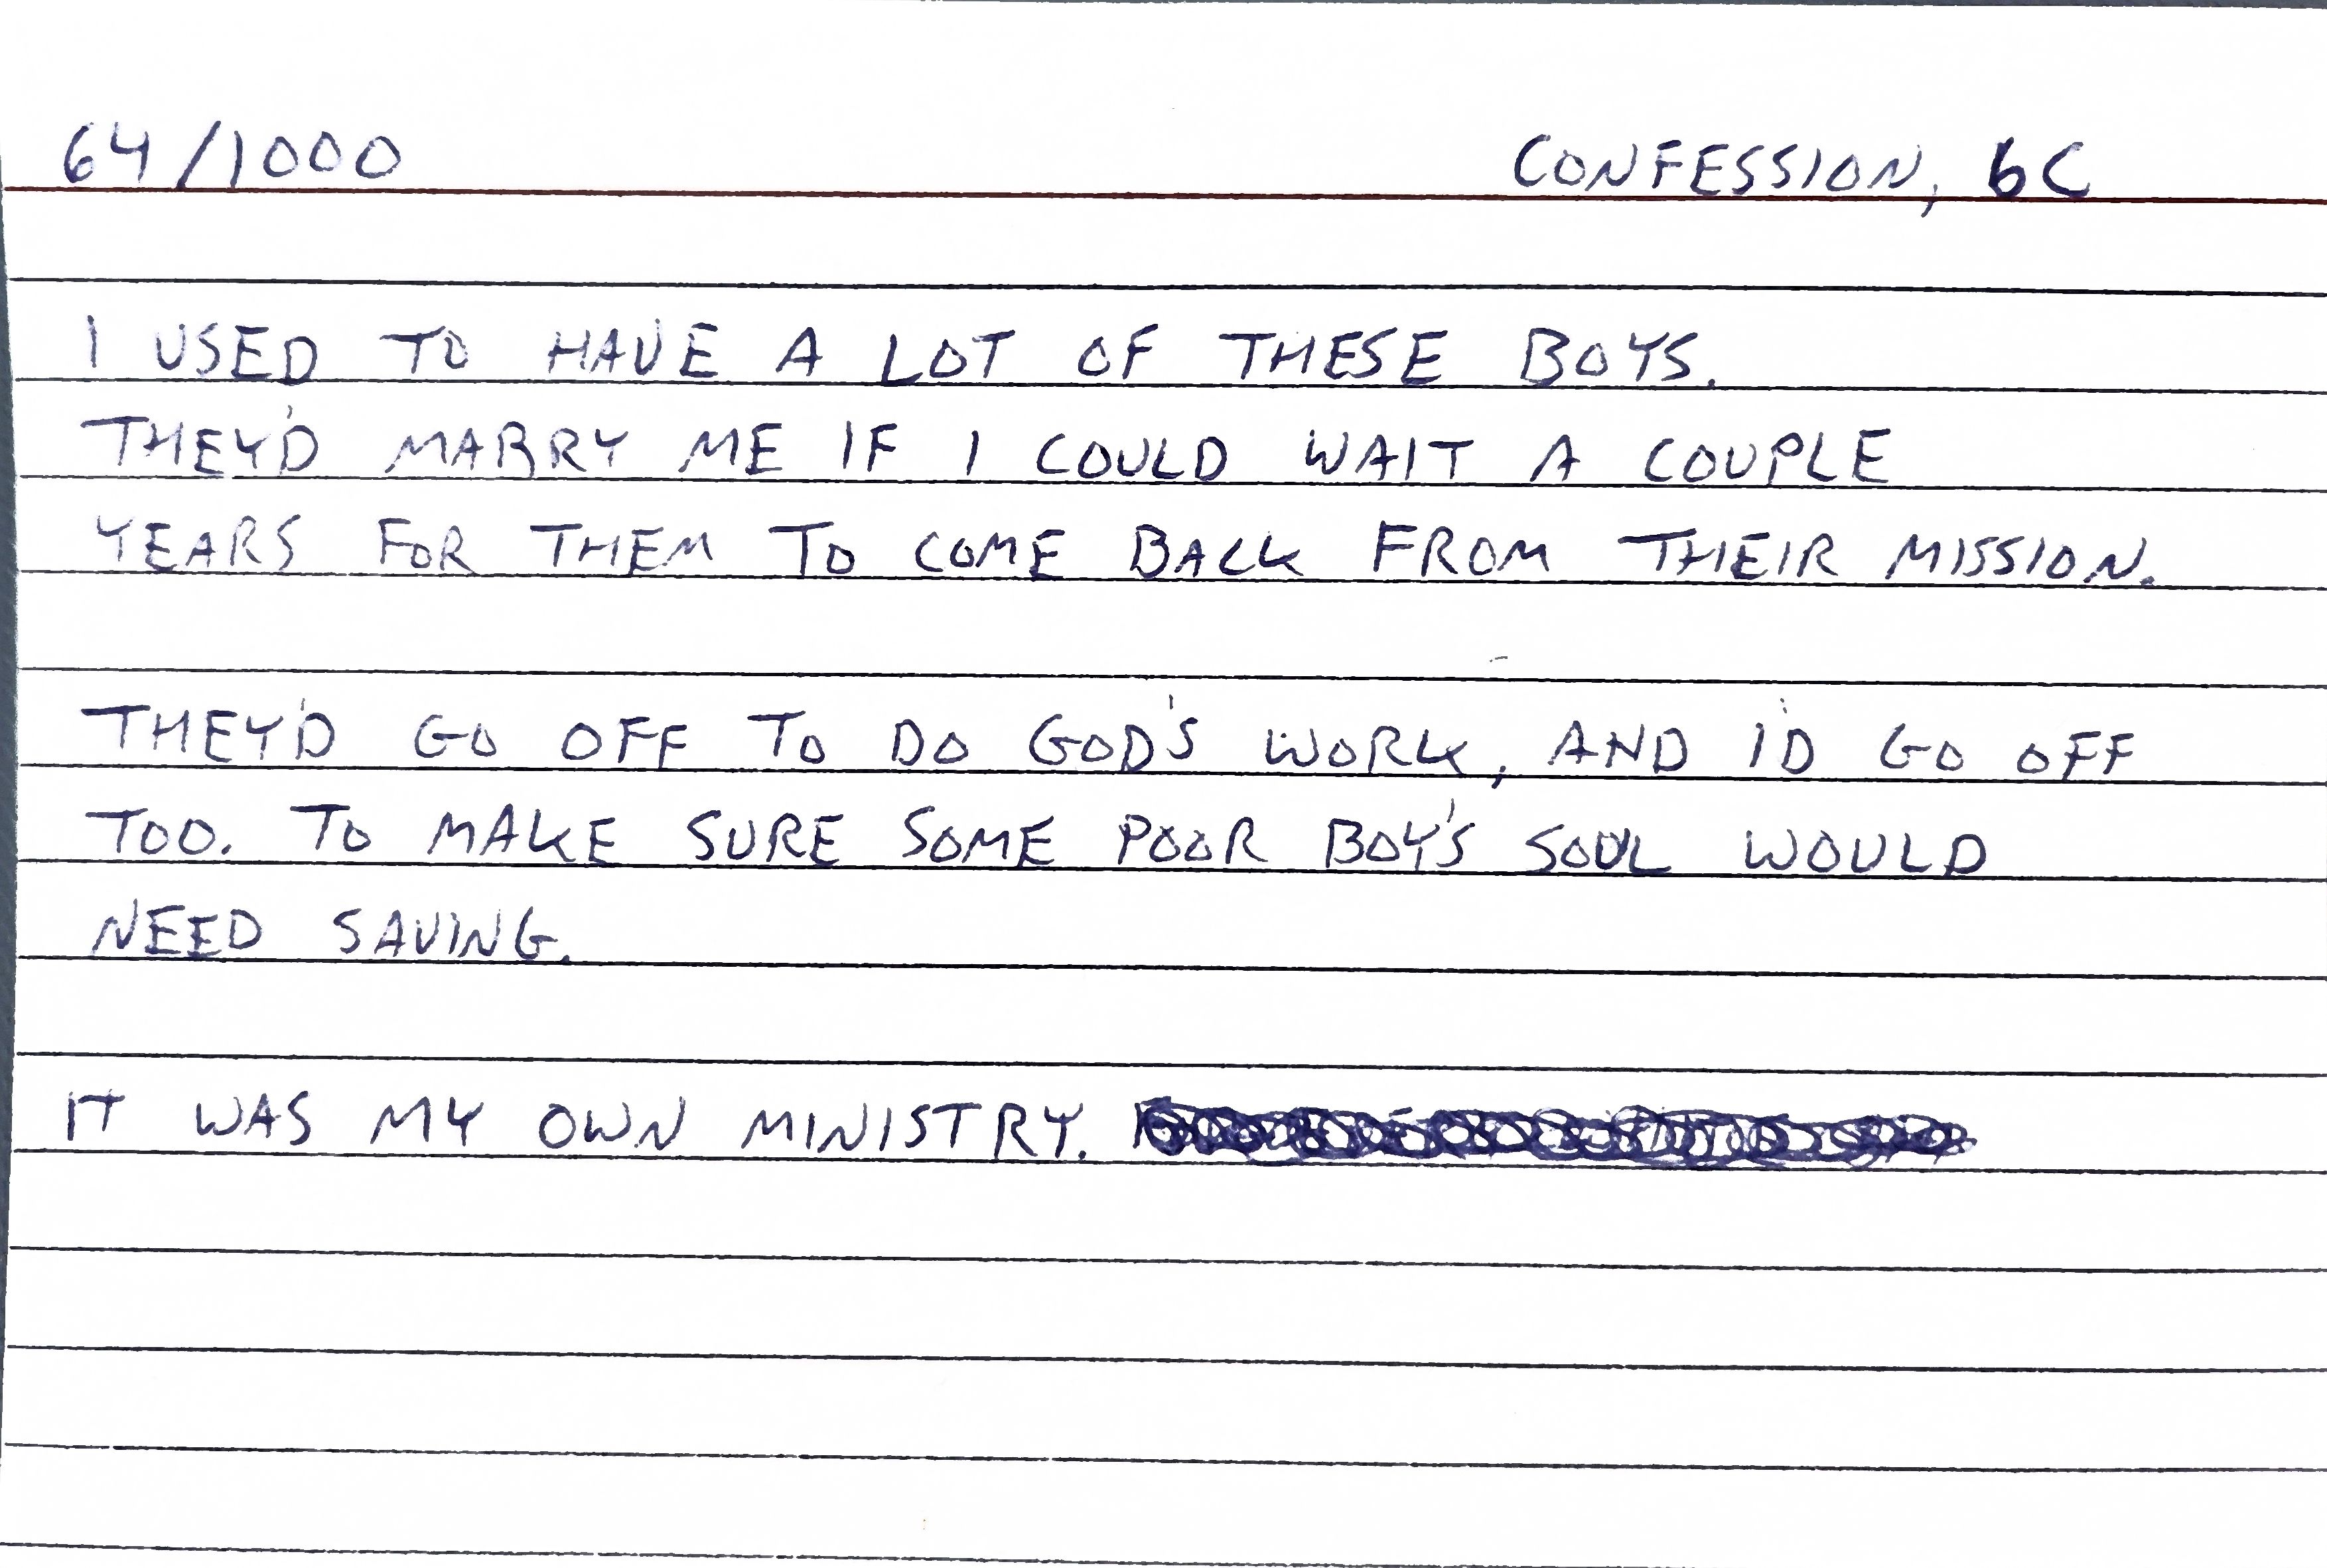 64/1000
CONFESSION, 6C
I USED TO HAVE A LOT OF THESE BOYS.
THEY'D MARRY ME IF I COULD WAIT A COUPLE
YEARS FOR THEM TO COME BACK FROM THEIR MISSION.
THEY'D GO OFF TO DO GOD'S WORK, AND I'D GO OFF
TOO. TO MAKE SURE SOME POOR BOY'S SOUL WOULD
NEED SAVING.
IT WAS MY OWN MINISTRY.